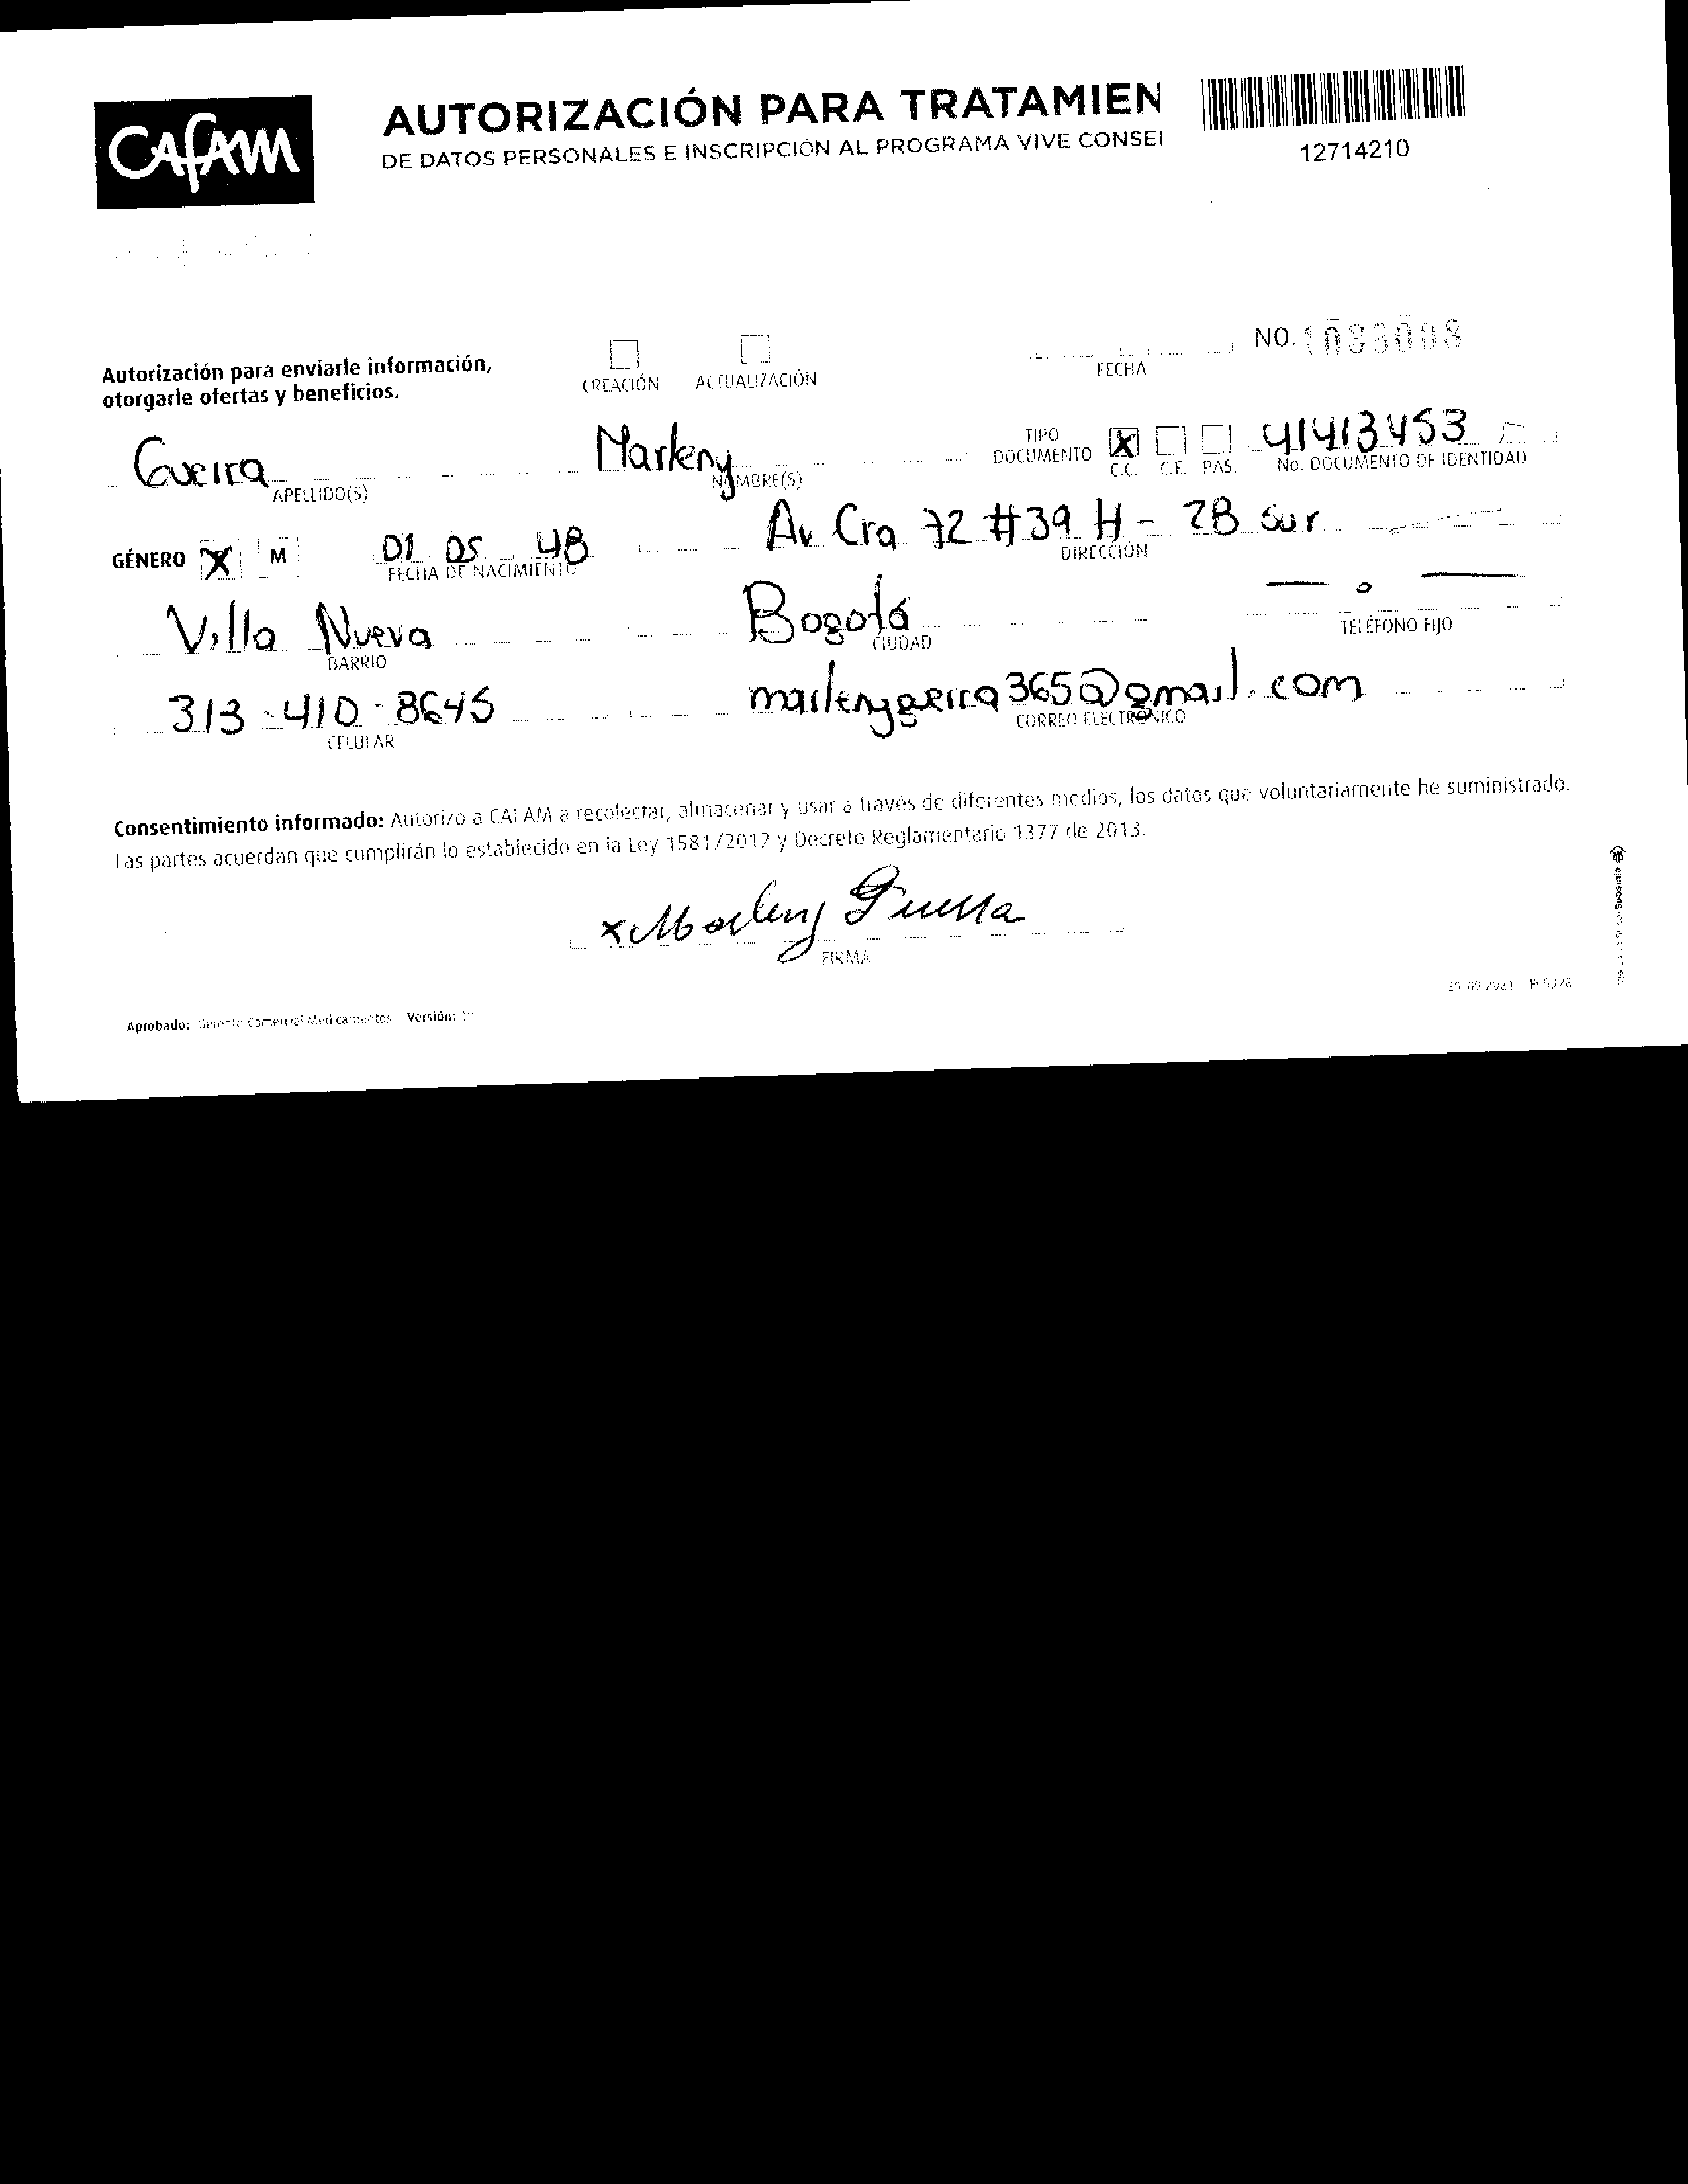 CAFAM
AUTORIZACIÓN PARA TRATAMIEN
DE DATOS PERSONALES E INSCRIPCIÓN AL PROGRAMA VIVE CONSEI
12714210
Autorización para enviarle información,
otorgarle ofertas y beneficios.
CREACIÓN ACTUALIZACIÓN
FECHA
NO. 1033008
Guerra
APELLIDO(S)
Marleny
NOMBRE(S)
TIPO
DOCUMENTO
X
C.C. C.E. PAS.
41413453
No. DOCUMENTO DE IDENTIDAD
GÉNERO X M
01 05 48
FECHA DE NACIMIENTO
Av Cra 72 #39 H - 28 sur
DIRECCIÓN
Villa Nueva
BARRIO
Bogotá
CIUDAD
TELÉFONO FIJO
313-410-8645
CELULAR
marlenygerra365@gmail.com
CORREO ELECTRÓNICO
Consentimiento informado: Autorizo a CAFAM a recolectar, almacenar y usar a través de diferentes medios, los datos que voluntariamente he suministrado.
Las partes acuerdan que cumplirán lo establecido en la Ley 1581/2012 y Decreto Reglamentario 1377 de 2013.
x Marleny Guerra
FIRMA
Aprobado: Gerente Comercial Medicamentos Versión: